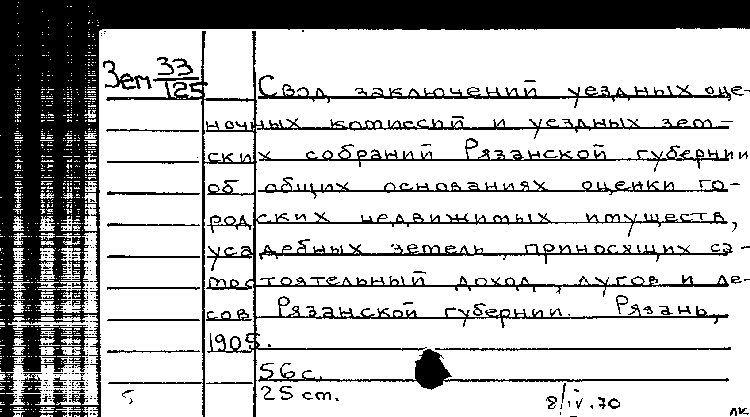 Зем 33/125
Свод заключений уездных оце-
ночных комиссий и уездных зем-
ских собраний Рязанской губернии
об общих основаниях оценки го-
родских недвижимых имуществ,
усадебных земель, приносящих са-
мостоятельный доход, лугов и ле-
сов Рязанской губернии. Рязань,
1905.
56 с.
25 см.
8/IV.70